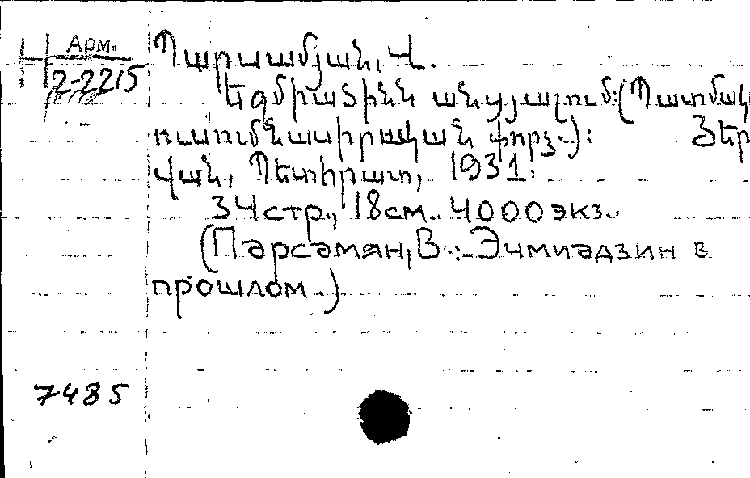 Арм.
2-2215
Պարսամյան, Վ.
Եջմիածինն անցյալում: (Պատմակ
ուսումնասիրական փորձ.): Յեր
վան, Պետհրատ, 1931.
34 стр., 18 см. 4000 экз.
(Парсамян, В.: Эчмиадзин в
прошлом.)
7485